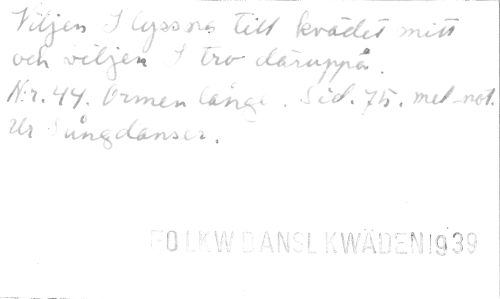 Viljen I lyssna till kvädet mitt
och viljen I tro däruppå.
N:r. 44. Ormen långe. Sid. 75. mel-not.
Ur Sångdanser.
FOLKW DANSLKWÄDEN 1939